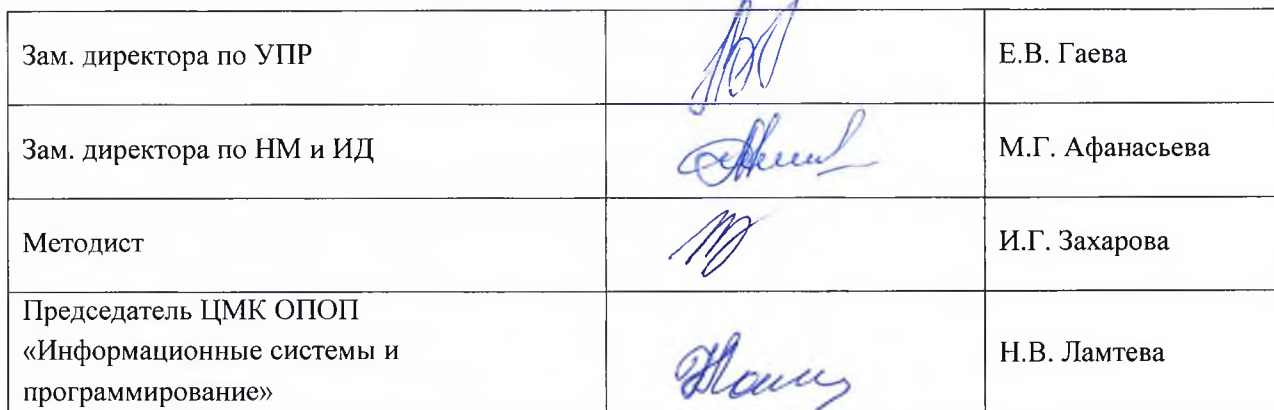 Зам. директора по УПР
Е.В. Гаева
Зам. директора по НМ и ИД
М.Г. Афанасьева
Методист
И.Г. Захарова
Председатель ЦМК ОПОП
«Информационные системы и
программирование»
Н.В. Ламтева